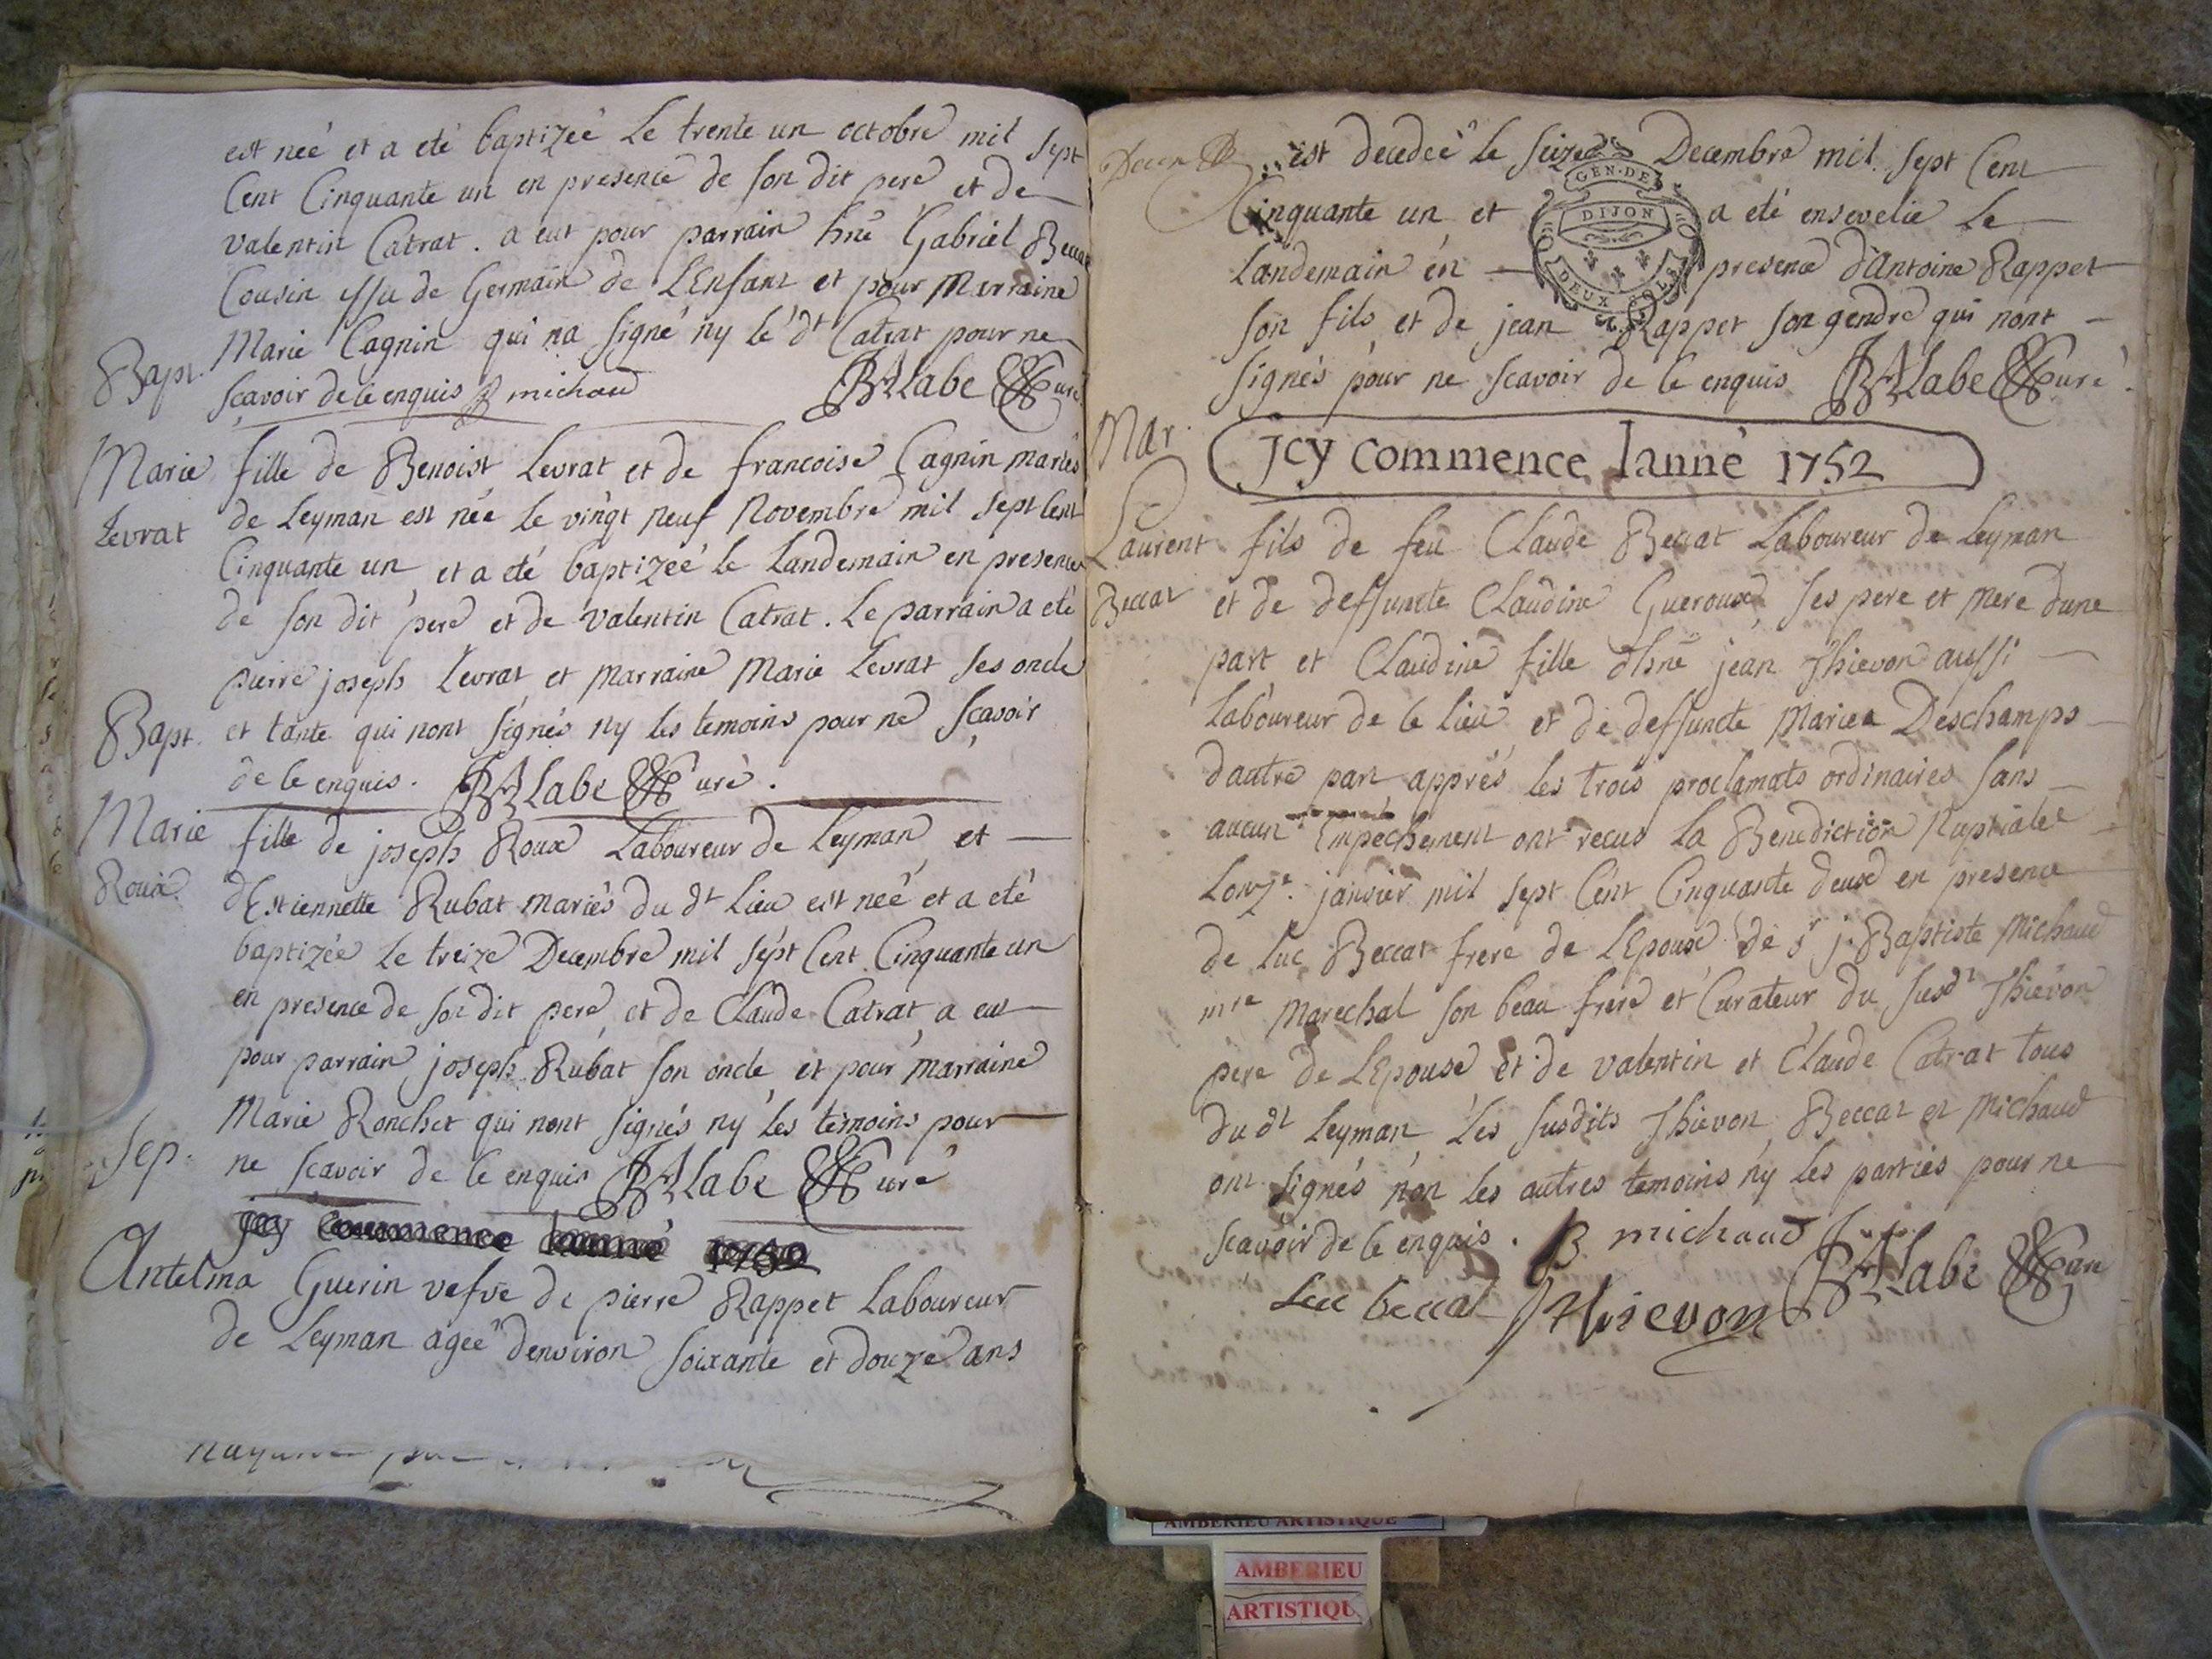 est neé et a eté baptizeé le trente un octobre mil sept
Cent Cinquante un en presence de son dit pere et de
valentin Catrat. a eut pour parrain hnë Gabriel Beccat
Cousin issu de Germain de L'Enfant et pour Marraine
Marie Cagnin qui na signé ny le dt Catrat pour ne
scavoir de ce enquis B michaud BALabe Curé
Bapt.
Marie Levrat
fille de Benoist Levrat et de francoise Cagnin mariés
de Leyman est née le vingt neuf Novembre mil sept Cent
Cinquante un et a eté baptizeé le Landemain en presence
de son dit pere et de valentin Catrat. Le parrain a eté
pierre joseph Levrat et Marraine Marie Levrat ses oncle
et tante qui nont signés ny les temoins pour ne scavoir
de ce enquis. BALabe Curé.
Bapt.
Marie Roux
fille de joseph Roux Laboureur de Leyman et
dEstiennette Rubat mariés du dt Lieu est neé et a eté
baptizée le treize Decembre mil sept Cent Cinquante un
en presence de son dit pere et de Claude Catrat a eut
pour parrain joseph Rubat son oncle et pour Marraine
Marie Ronchet qui nont signés ny les temoins pour
ne scavoir de ce enquis BALabe Curé
jcy commence lanné
Sep.
Antelma Guerin vefve de pierre Rappet Laboureur
de Leyman ageé denviron soixante et douze ans
est decedeé le seize Decembre mil sept Cent
Cinquante un et a eté ensevelie le
Landemain en presence d'Antoine Rappet
son fils et de jean Rappet son gendre qui nont
signés pour ne scavoir de ce enquis BALabe Curé.
GEN. DE
DIJON
DEUX SOLS
jcy commence lanné 1752
Mar.
Laurent Beccat
fils de feu Claude Beccat Laboureur de Leyman
et de deffuncte Claudine Gueroux ses pere et mere dune
part et Claudine fille dhnë jean Thievon aussi
Laboureur de ce lieu et de deffuncte Marie Deschamps
dautre part apprés les trois proclamats ordinaires sans
aucun Empechement ont recus la Benediction Nuptiale
Lonze. janvier mil sept Cent Cinquante deux en presence
de Luc Beccat frere de L'Epoux de sr j. Baptiste Michaud
mre Marechal son beau frere et Curateur du susdt Thievon
pere de L'Epouse et de valentin et Claude Catrat tous
du dt Leyman, Les susdits Thievon Beccat et Michaud
ont signés non les autres temoins ny les parties pour ne
scavoir de ce enquis. B michaud
Luc beccat J Thievon BALabe Curé
AMBERIEU ARTISTIQUE
AMBERIEU
ARTISTIQU